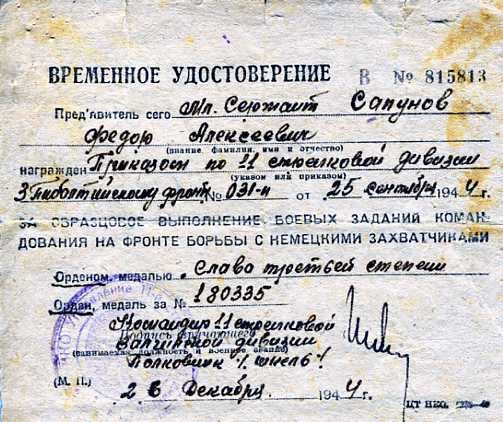 ВРЕМЕННОЕ УДОСТОВЕРЕНИЕ В № 815813
Пред'явитель сего Мл. Сержант Сапунов
Федор Алексеевич
(звание фамилия, имя и отчество)
награжден Приказом по 11 стрелковой дивизии
(указом или приказом)
3 Прибалтийскому фронт № 031-н от 25 сентября 1944 г.
за ОБРАЗЦОВОЕ ВЫПОЛНЕНИЕ БОЕВЫХ ЗАДАНИЙ КОМАН-
ДОВАНИЯ НА ФРОНТЕ БОРЬБЫ С НЕМЕЦКИМИ ЗАХВАТЧИКАМИ
Орденом, медалью Слава третьей степени
Орден, медаль за № 180335
Командир 11 стрелковой
Подпись вручающего
Валгинской дивизии
(занимаемая должность и военное звание)
Полковник / Шкель /
(М. П.) 26 Декабря 1944 г.
ЦТ НКО.